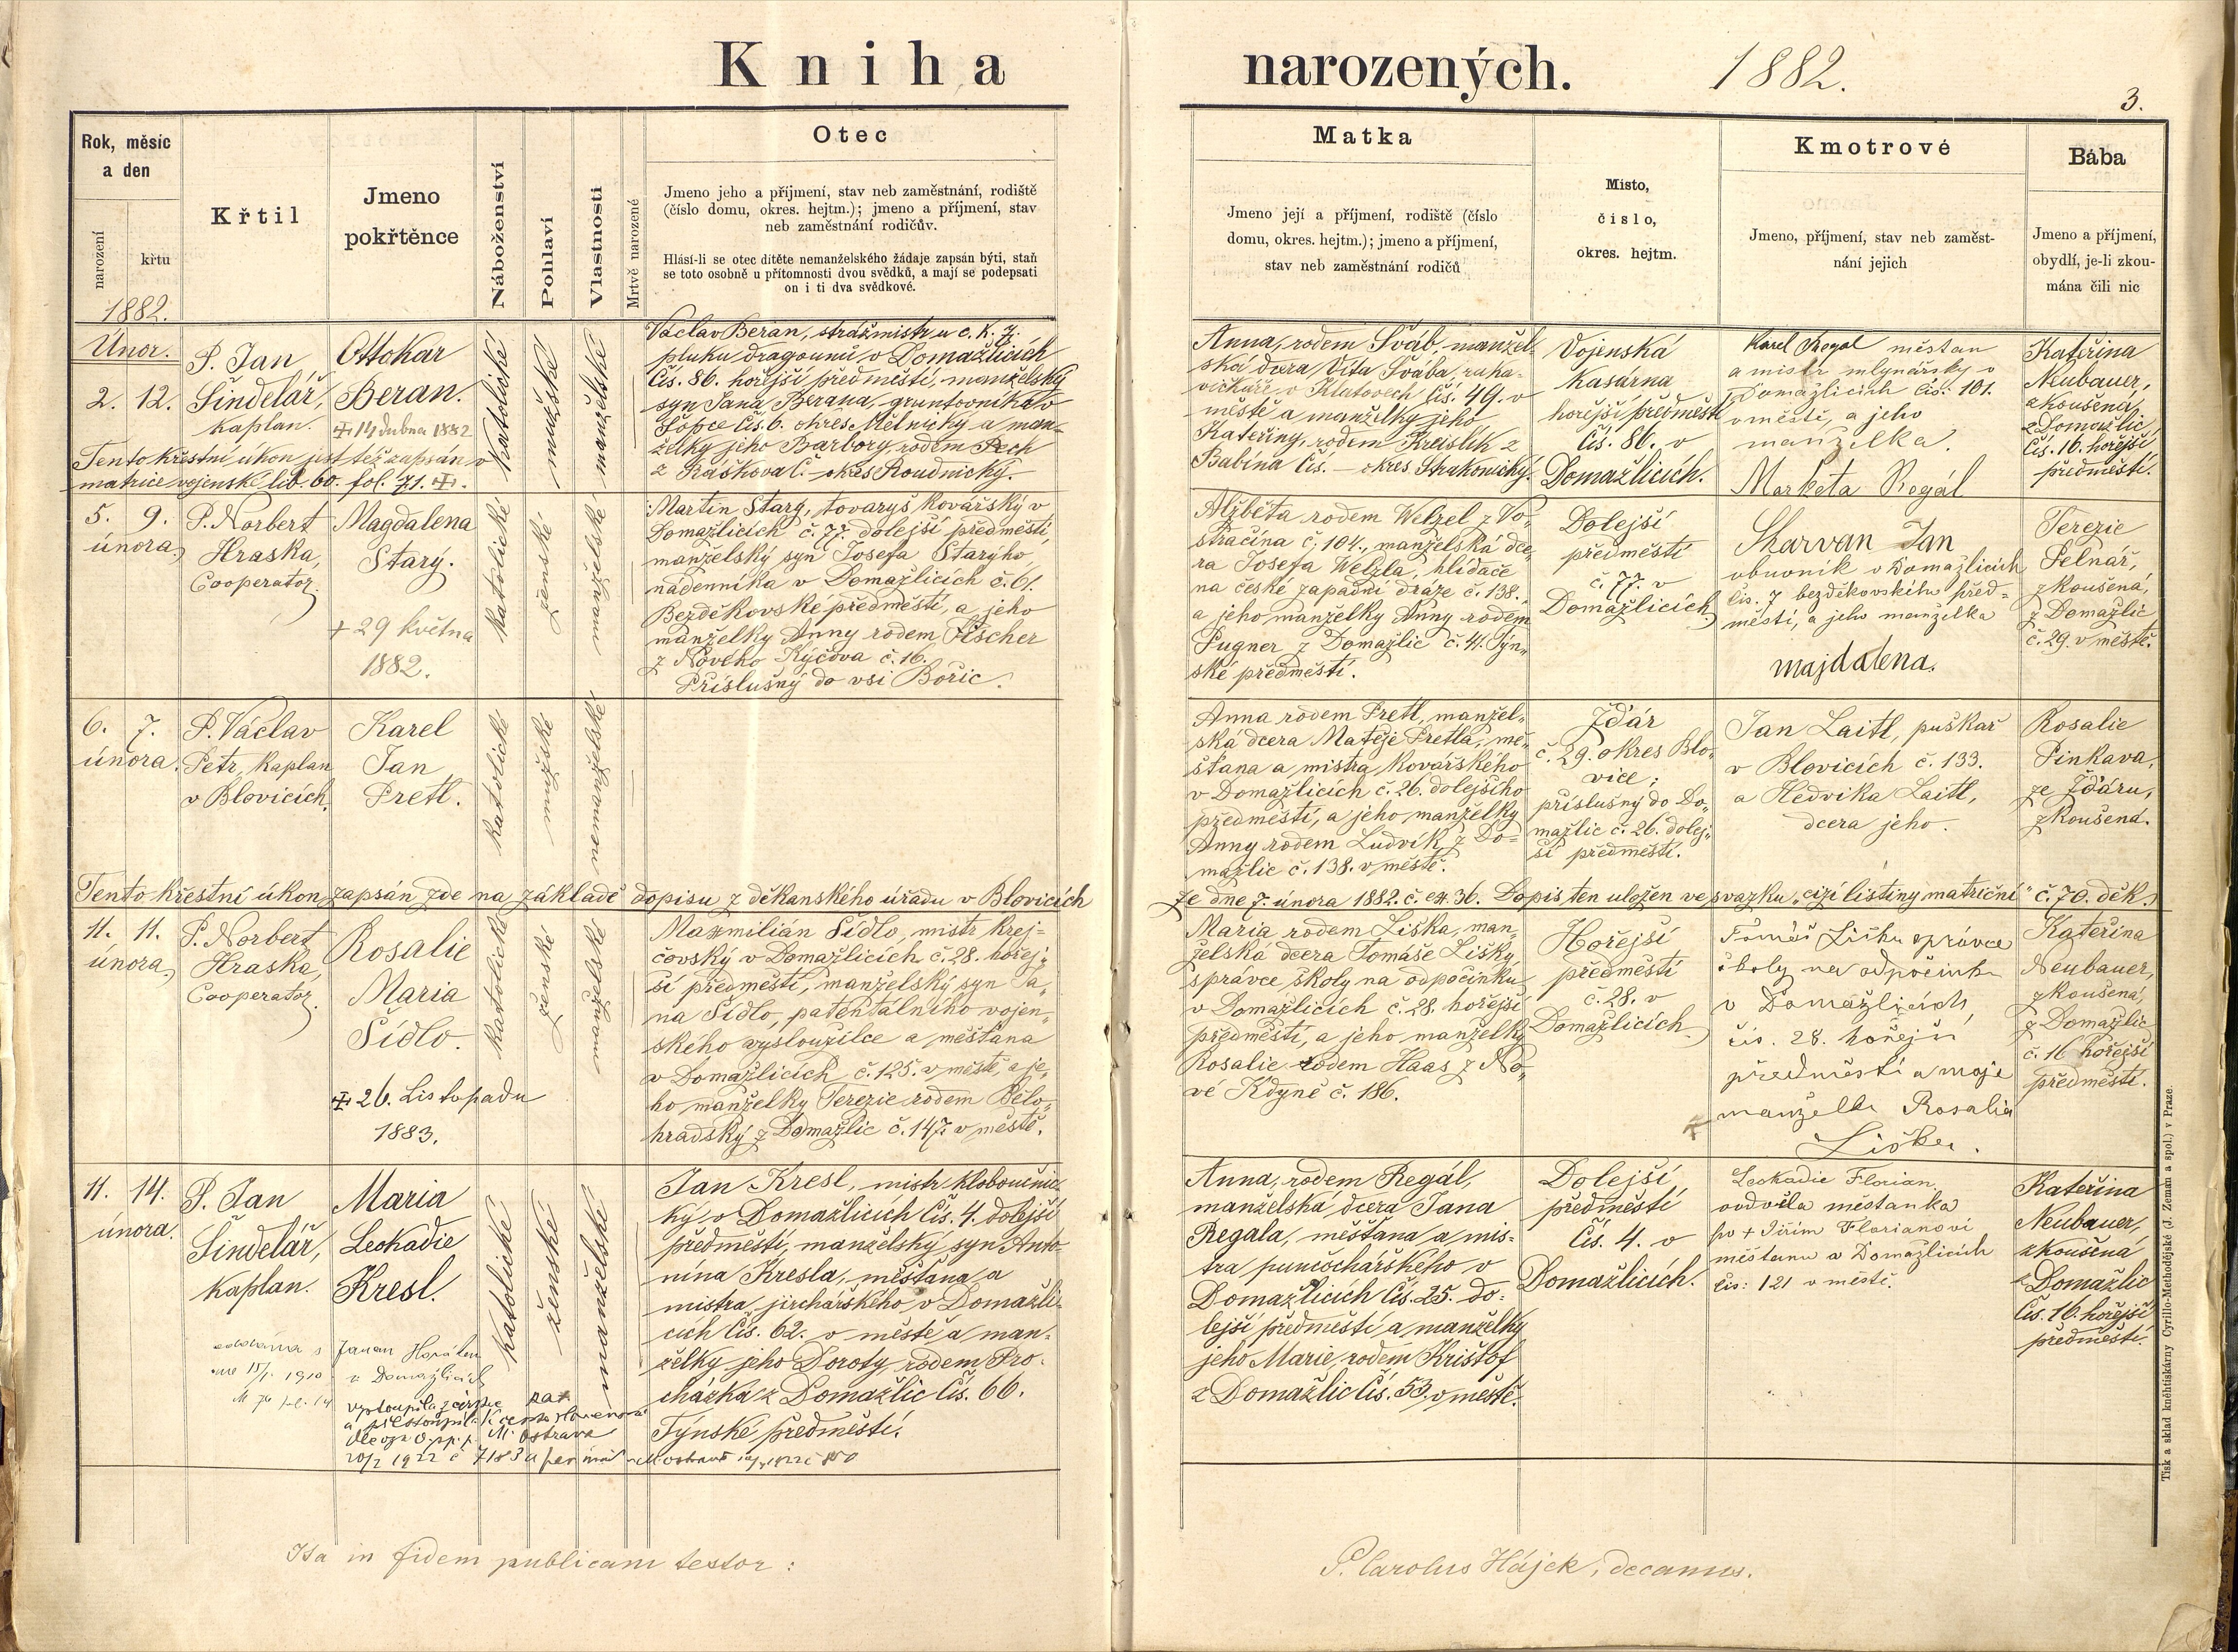 Kniha narozených. 1882.
3.
Rok, měsíc
a den
narození
křtu
1882.
Křtil
Jmeno
pokřtěnce
Náboženství
Pohlaví
Vlastnosti
Mrtvě narozené
Otec
Jmeno jeho a příjmení, stav neb zaměstnání, rodiště
(číslo domu, okres. hejtm.); jmeno a příjmení, stav
neb zaměstnání rodičův.
Hlásí-li se otec dítěte nemanželského žádaje zapsán býti, staň
se toto osobně u přítomnosti dvou svědků, a mají se podepsati
on i ti dva svědkové.
Matka
Jmeno její a příjmení, rodiště (číslo
domu, okres. hejtm.); jmeno a příjmení,
stav neb zaměstnání rodičů
Místo,
číslo,
okres. hejtm.
Kmotrové
Jmeno, příjmení, stav neb zaměst-
nání jejich
Bába
Jmeno a příjmení,
obydlí, je-li zkou-
mána čili nic
Únor.
2. 12.
P. Jan
Šindelář,
kaplan.
Ottokar
Beran.
14 dubna 1882
Katolické
mužské
manželské
Václav Beran, strážmistr u c. k. 7.
pluku dragounů v Domažlicích
Čís. 86. hořejší předměstí, manželský
syn Jana Berana, gruntovníka v
Čís. 6. okres Mělnický a man-
želky jeho Barbory, rodem Pech
z Ráčkova Č. – okres Roudnický.
Tento křestní úkon jest též zapsán v
matrice vojensk. lib. 60. fol. 71.
Anna, rodem Šváb, manžel-
ská dcera Víta Švába, ruka-
vičkáře v Klatovech Čís. 49. v
městě a manželky jeho
Kateřiny, rodem Kreislík z
Babína Čís. – okres Strakonický.
Vojenská
Kasárna
hořejší předměstí
Čís. 86. v
Domažlicích.
Karel Regal měšťan
a mistr mlynářský v
Domažlicích čís: 101.
v městě, a jeho
manželka.
Marketa Regál
Kateřina
Neubauer,
zkoušená,
z Domažlic
Čís. 16. hořejší
předměstí.
5. 9.
února.
P. Norbert
Hraska,
Cooperator.
Magdalena
Starý.
+ 29 května
1882.
Katolické
ženské
manželské
Martin Starý, tovaryš kovářský v
Domažlicích č. 77. dolejší předměstí,
manželský syn Josefa Starýho,
nádenníka v Domažlicích č. 61.
Bezděkovské předměstí, a jeho
manželky Anny rodem Fischer
z Nového Kýčova č. 16.
Příslušný do vsi Bořic.
Alžběta rodem Welzel z Po-
stračína č. 104., manželská dce-
ra Josefa Welzla, hlídače
na české západní dráze č. 138.,
a jeho manželky Anny rodem
Pugner z Domažlic č. 41. Týn-
ské předměstí.
Dolejší
předměstí
č. 77. v
Domažlicích.
Skarvan Jan
obuvník v Domažlicích
čís. 7 bezděkovského před-
městí, a jeho manželka
majdalena.
Terezie
Pelnář,
zkoušená,
z Domažlic
č. 29. v městě.
6. 7.
února.
P. Václav
Petr, kaplan
v Blovicích.
Karel
Jan
Pretl.
Katolické
mužské
nemanželské
Anna rodem Pretl, manžel-
ská dcera Matěje Pretla, mě-
šťana a mistra kovářského
v Domažlicích č. 26. dolejšího
předměstí, a jeho manželky
Anny rodem Ludvík, z Do-
mažlic č. 138. v městě.
Žďár
č. 29. okres Blo-
vice;
příslušný do Do-
mažlic č. 26. dolej-
ší předměstí.
Jan Laitl, puškař
v Blovicích č. 133.
a Hedvika Laitl,
dcera jeho.
Rosalie
Pinkava,
ze Žďáru,
zkoušená.
Tento křestní úkon zapsán zde na základě dopisu z děkanského úřadu v Blovicích
ze dne 7. února 1882. č. ex. 36. Dopis ten uložen ve svazku „cizí listiny matriční“ č. 70. děk.
11. 11.
února.
P. Norbert
Hraska,
Cooperator.
Rosalie
Maria
Šídlo.
26. Listopadu
1883.
Katolické
ženské
manželské
Maxmilián Šídlo, mistr krej-
čovský v Domažlicích č. 28. hořej-
ší předměstí, manželský syn Ja-
na Šídlo, patentálního vojen-
ského vysloužilce a měšťana
v Domažlicích č. 125. v městě, a je-
ho manželky Terezie rodem Bělo-
hradský z Domažlic č. 147. v městě.
Maria rodem Liška, man-
želská dcera Tomáše Lišky,
správce školy na odpočinku
v Domažlicích č. 28. hořejší
předměstí, a jeho manželky
Rosalie rodem Haas z No-
vé Kdyně č. 186.
Hořejší
předměstí
č. 28. v
Domažlicích.
Tomáš Liška správce
školy na odpočinku
v Domažlicích,
čís. 28. hořejší
předměstí a moje
manželka Rosalia
Liška.
Kateřina
Neubauer,
zkoušená,
z Domažlic
č. 16 hořejší
předměstí.
11. 14.
února.
P. Jan
Šindelář,
kaplan.
Maria
Leokadie
Kresl.
Katolické
ženské
manželské
Jan Kresl, mistr kloboučnic-
ký v Domažlicích Čís. 4. dolejší
předměstí, manželský syn Anto-
nína Kresla, měšťana a
mistra jirchářského v Domažli-
cích Čís. 62. v městě a man-
želky jeho Doroty, rodem Pro-
cházka z Domažlic Čís. 66.
Týnské předměstí.
Anna, rodem Regál,
manželská dcera Jana
Regala, měšťana a mis-
tra punčochářského v
Domažlicích Čís. 25. do-
lejší předměstí a manželky
jeho Marie, rodem Krištof
z Domažlic Čís. 53. v městě.
Dolejší
předměstí
Čís. 4. v
Domažlicích.
Leokadie Florian,
ovdvělá měšťanka
po + Jiřím Florianovi
měšťanu v Domažlicích
čís: 121 v městě.
Kateřina
Neubauer,
zkoušená
z Domažlic
Čís. 16. hořejší
předměstí.
oddána s Janem
1910 v Domažlicích
vystoupila z církve
a přestoupila k
M. Ostrava
1922 č 7183
Ita in fidem publicam testor:
P. Carolus Hájek, decanus.
Tisk a sklad kněhtiskárny Cyrillo-Methodějské (J. Zeman a spol.) v Praze.